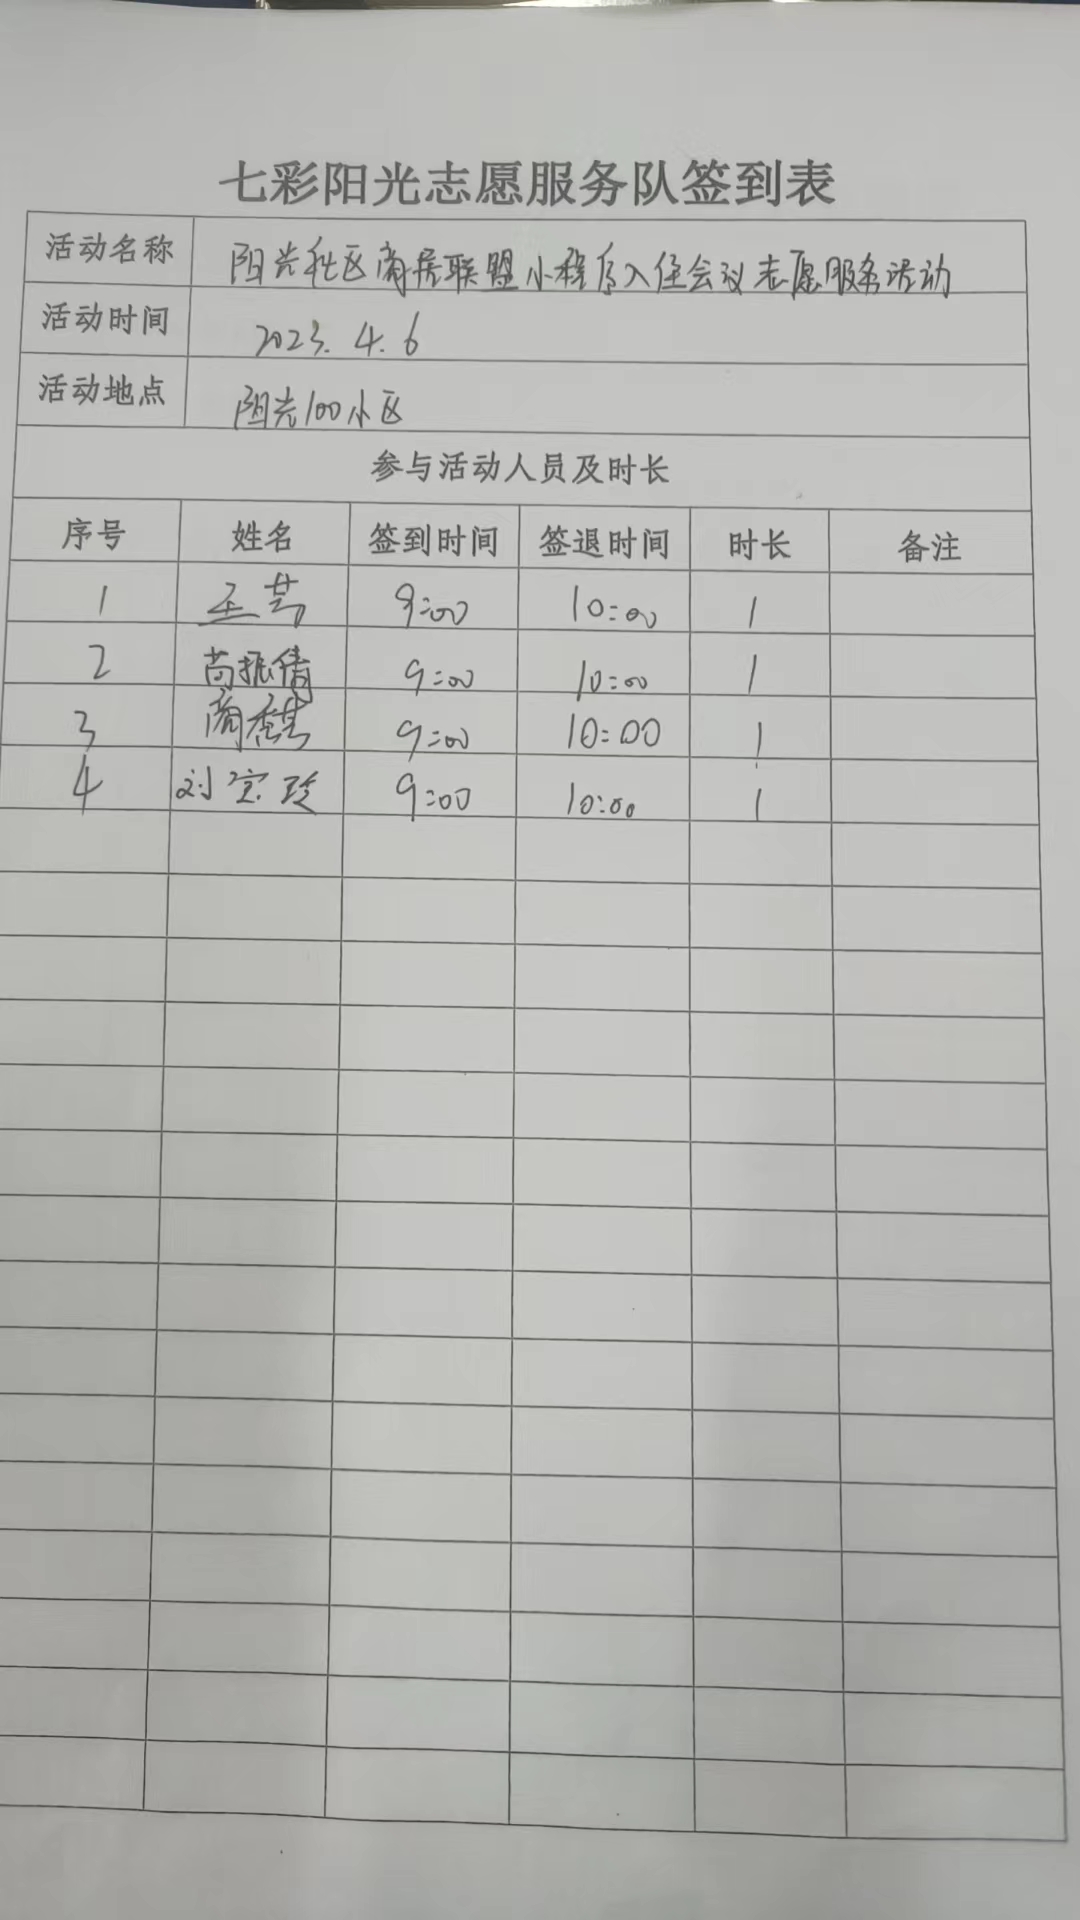 七彩阳光志愿服务队签到表
活动名称 阳光社区商居联盟小程序入住会议志愿服务活动
活动时间 2023.4.6
活动地点 阳光100小区
参与活动人员及时长
序号 姓名 签到时间 签退时间 时长 备注
1 王芸 9:00 10:00 1
2 苘振倩 9:00 10:00 1
3 商 9:00 10:00 1
4 刘宝玫 9:00 10:00 1